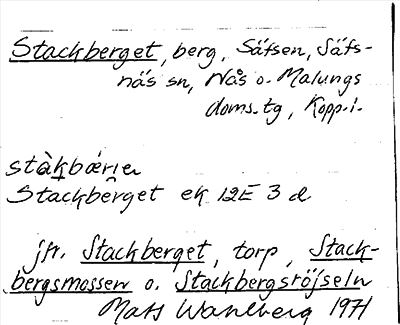 Stackberget, berg, Säfsen, Säfs-
näs sn, Nås o. Malungs
doms.tg, Kopp.l.
stàk̠bǽrı̣e̮n
Stackberget ek 12E 3 d
jfr. Stackberget, torp, Stack-
bergsmossen o. Stackbergsröjseln
Mats Wahlberg 1971